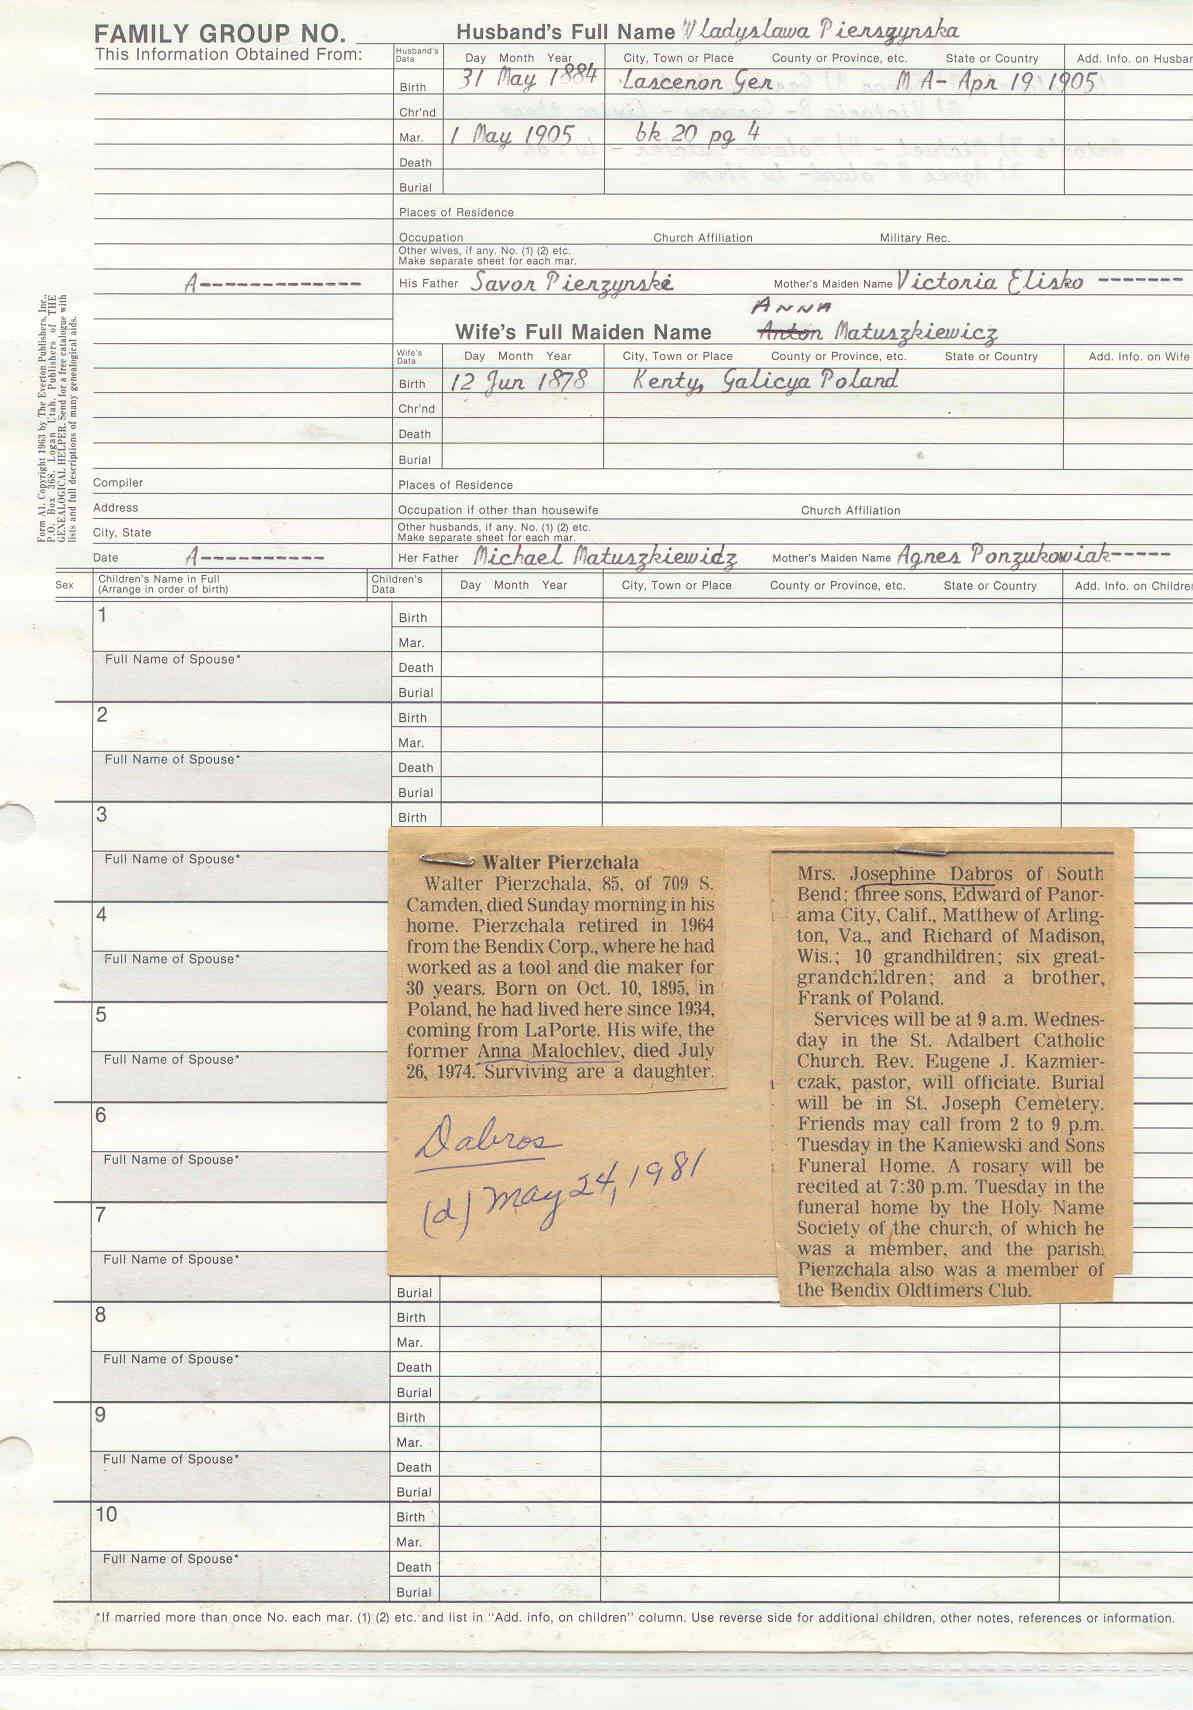 FAMILY GROUP NO.
Husband's Full Name Wladyslawa Pierszynska
This Information Obtained From:
Husband's Data Day Month Year City, Town or Place County or Province, etc. State or Country Add. Info. on Husban
Birth 31 May 1884 Lascenon Ger M A- Apr 19, 1905
Chr'nd
Mar. 1 May 1905 bk 20 pg 4
Death
Burial
Places of Residence
Occupation Church Affiliation Military Rec.
Other wives, if any. No. (1) (2) etc.
Make separate sheet for each mar.
A------------- His Father Savor Pierzynski Mother's Maiden Name Victoria Elisko -------
ANNA
Wife's Full Maiden Name Anton Matuszkiewicz
Wife's Data Day Month Year City, Town or Place County or Province, etc. State or Country Add. Info. on Wife
Birth 12 Jun 1878 Kenty, Galicya Poland
Chr'nd
Death
Burial
Form A1. Copyright 1963 by The Everton Publishers, Inc.,
P.O. Box 368, Logan Utah. Publishers of THE
GENEALOGICAL HELPER. Send for a free catalogue with
lists and full descriptions of many genealogical aids.
Compiler Places of Residence
Address Occupation if other than housewife Church Affiliation
City, State Other husbands, if any. No. (1) (2) etc.
Make separate sheet for each mar.
Date A---------- Her Father Michael Matuszkiewidz Mother's Maiden Name Agnes Ponzukowiak-----
Sex Children's Name in Full
(Arrange in order of birth) Children's Data Day Month Year City, Town or Place County or Province, etc. State or Country Add. Info. on Children
1 Birth
Mar.
Full Name of Spouse*
Death
Burial
2 Birth
Mar.
Full Name of Spouse*
Death
Burial
3 Birth
Full Name of Spouse*
4
Full Name of Spouse*
5
Full Name of Spouse*
6
Full Name of Spouse*
7
Full Name of Spouse*
Walter Pierzchala
Walter Pierzchala, 85, of 709 S.
Camden, died Sunday morning in his
home. Pierzchala retired in 1964
from the Bendix Corp., where he had
worked as a tool and die maker for
30 years. Born on Oct. 10, 1895, in
Poland, he had lived here since 1934,
coming from LaPorte. His wife, the
former Anna Malochlev, died July
26, 1974. Surviving are a daughter.
Dabros
(d) May 24, 1981
Mrs. Josephine Dabros of South
Bend; three sons, Edward of Panor-
ama City, Calif., Matthew of Arling-
ton, Va., and Richard of Madison,
Wis.; 10 grandhildren; six great-
grandchildren; and a brother,
Frank of Poland.
Services will be at 9 a.m. Wednes-
day in the St. Adalbert Catholic
Church. Rev. Eugene J. Kazmier-
czak, pastor, will officiate. Burial
will be in St. Joseph Cemetery.
Friends may call from 2 to 9 p.m.
Tuesday in the Kaniewski and Sons
Funeral Home. A rosary will be
recited at 7:30 p.m. Tuesday in the
funeral home by the Holy Name
Society of the church, of which he
was a member, and the parish.
Pierzchala also was a member of
the Bendix Oldtimers Club.
Burial
8 Birth
Mar.
Full Name of Spouse*
Death
Burial
9 Birth
Mar.
Full Name of Spouse*
Death
Burial
10 Birth
Mar.
Full Name of Spouse*
Death
Burial
*If married more than once No. each mar. (1) (2) etc. and list in "Add. info, on children" column. Use reverse side for additional children, other notes, references or information.